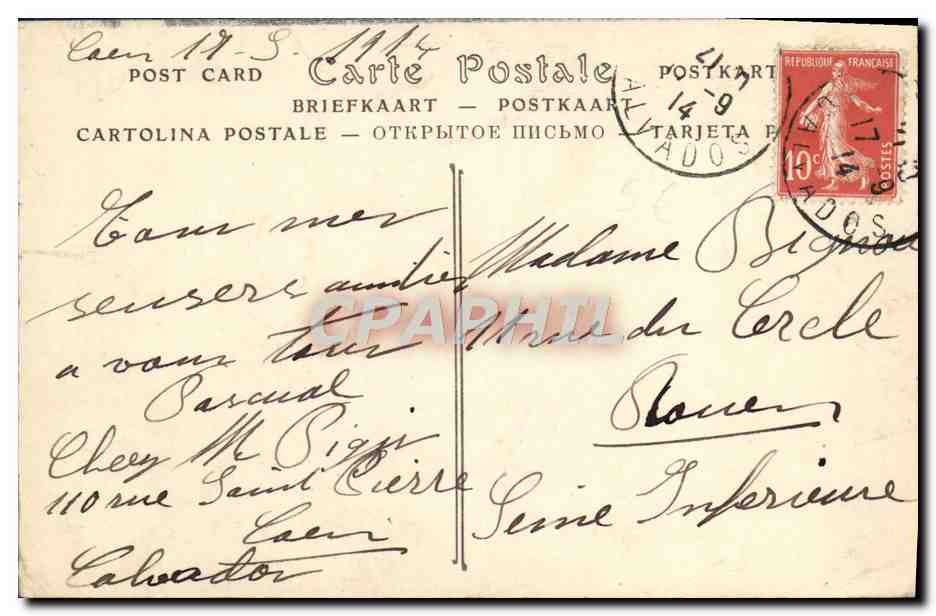 Caen 17-9-1914
POST CARD Carte Postale POSTKART
BRIEFKAART - POSTKAART
CARTOLINA POSTALE - ОТКРЫТОЕ ПИСЬМО - TARJETA P
ALVADOS
14
RÉPUBLIQUE FRANÇAISE
10c
POSTES
17
14
CALVADOS
Tour mes
sensers amities
a vous tous
Pascual
Chez M Pigis
110 rue Saint Pierre
Caen
Calvador
Madame Bignou
rue du Cercle
Rouen
Seine Inferieure
CPAPHIL